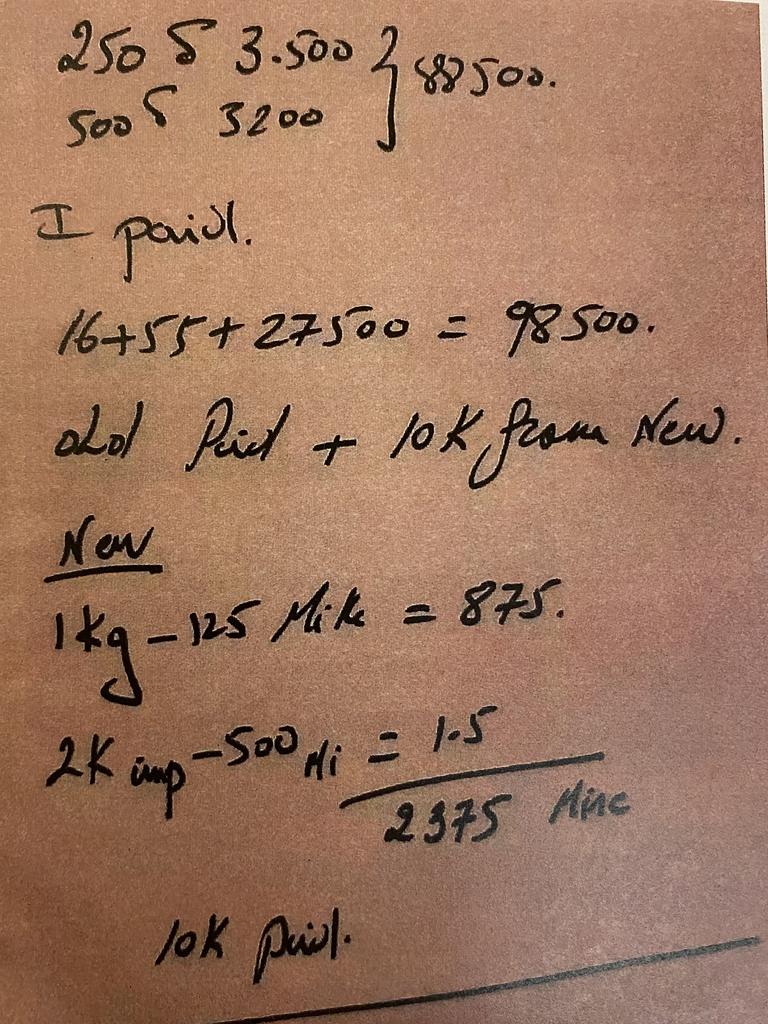 250 S 3.500 } 88500.
500 S 3200
I paid.
16+55+27500 = 98500.
old Paid + 10K from New.
New
1Kg - 125 Mike = 875.
2K imp - 500 Mi = 1.5
2375 Mine
10K paid.